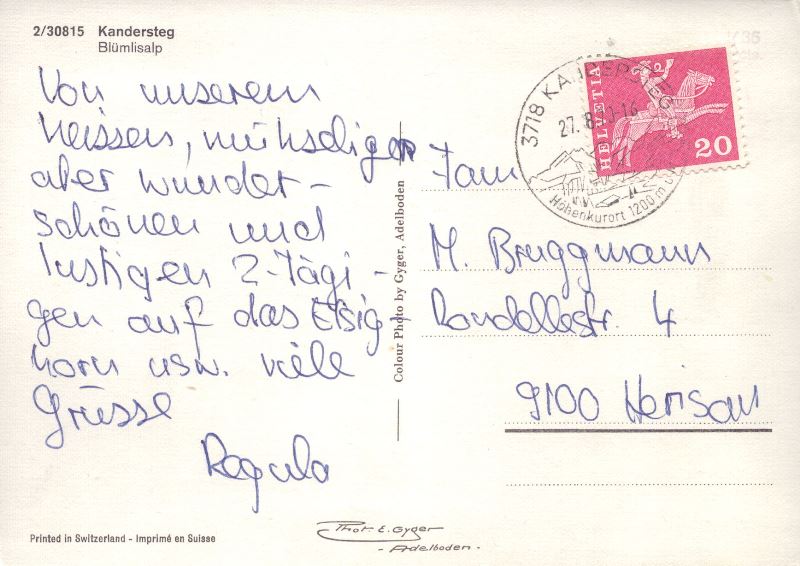 2/30815 Kandersteg
Blümlisalp
Von unserem
heissen, mühseligen
aber wunder-
schönen und
lustigen 2-Tägi-
gen auf das Elsig-
horn usw. viele
Grüsse
Regula
Colour Photo by Gyger, Adelboden
3718 KANDERSTEG
27.8.
Höhenkurort 1200 m
HELVETIA
20
Fam
M. Bruggmann
Rondellestr. 4
9100 Herisau
Printed in Switzerland - Imprimé en Suisse
Phot. E. Gyger
- Adelboden -